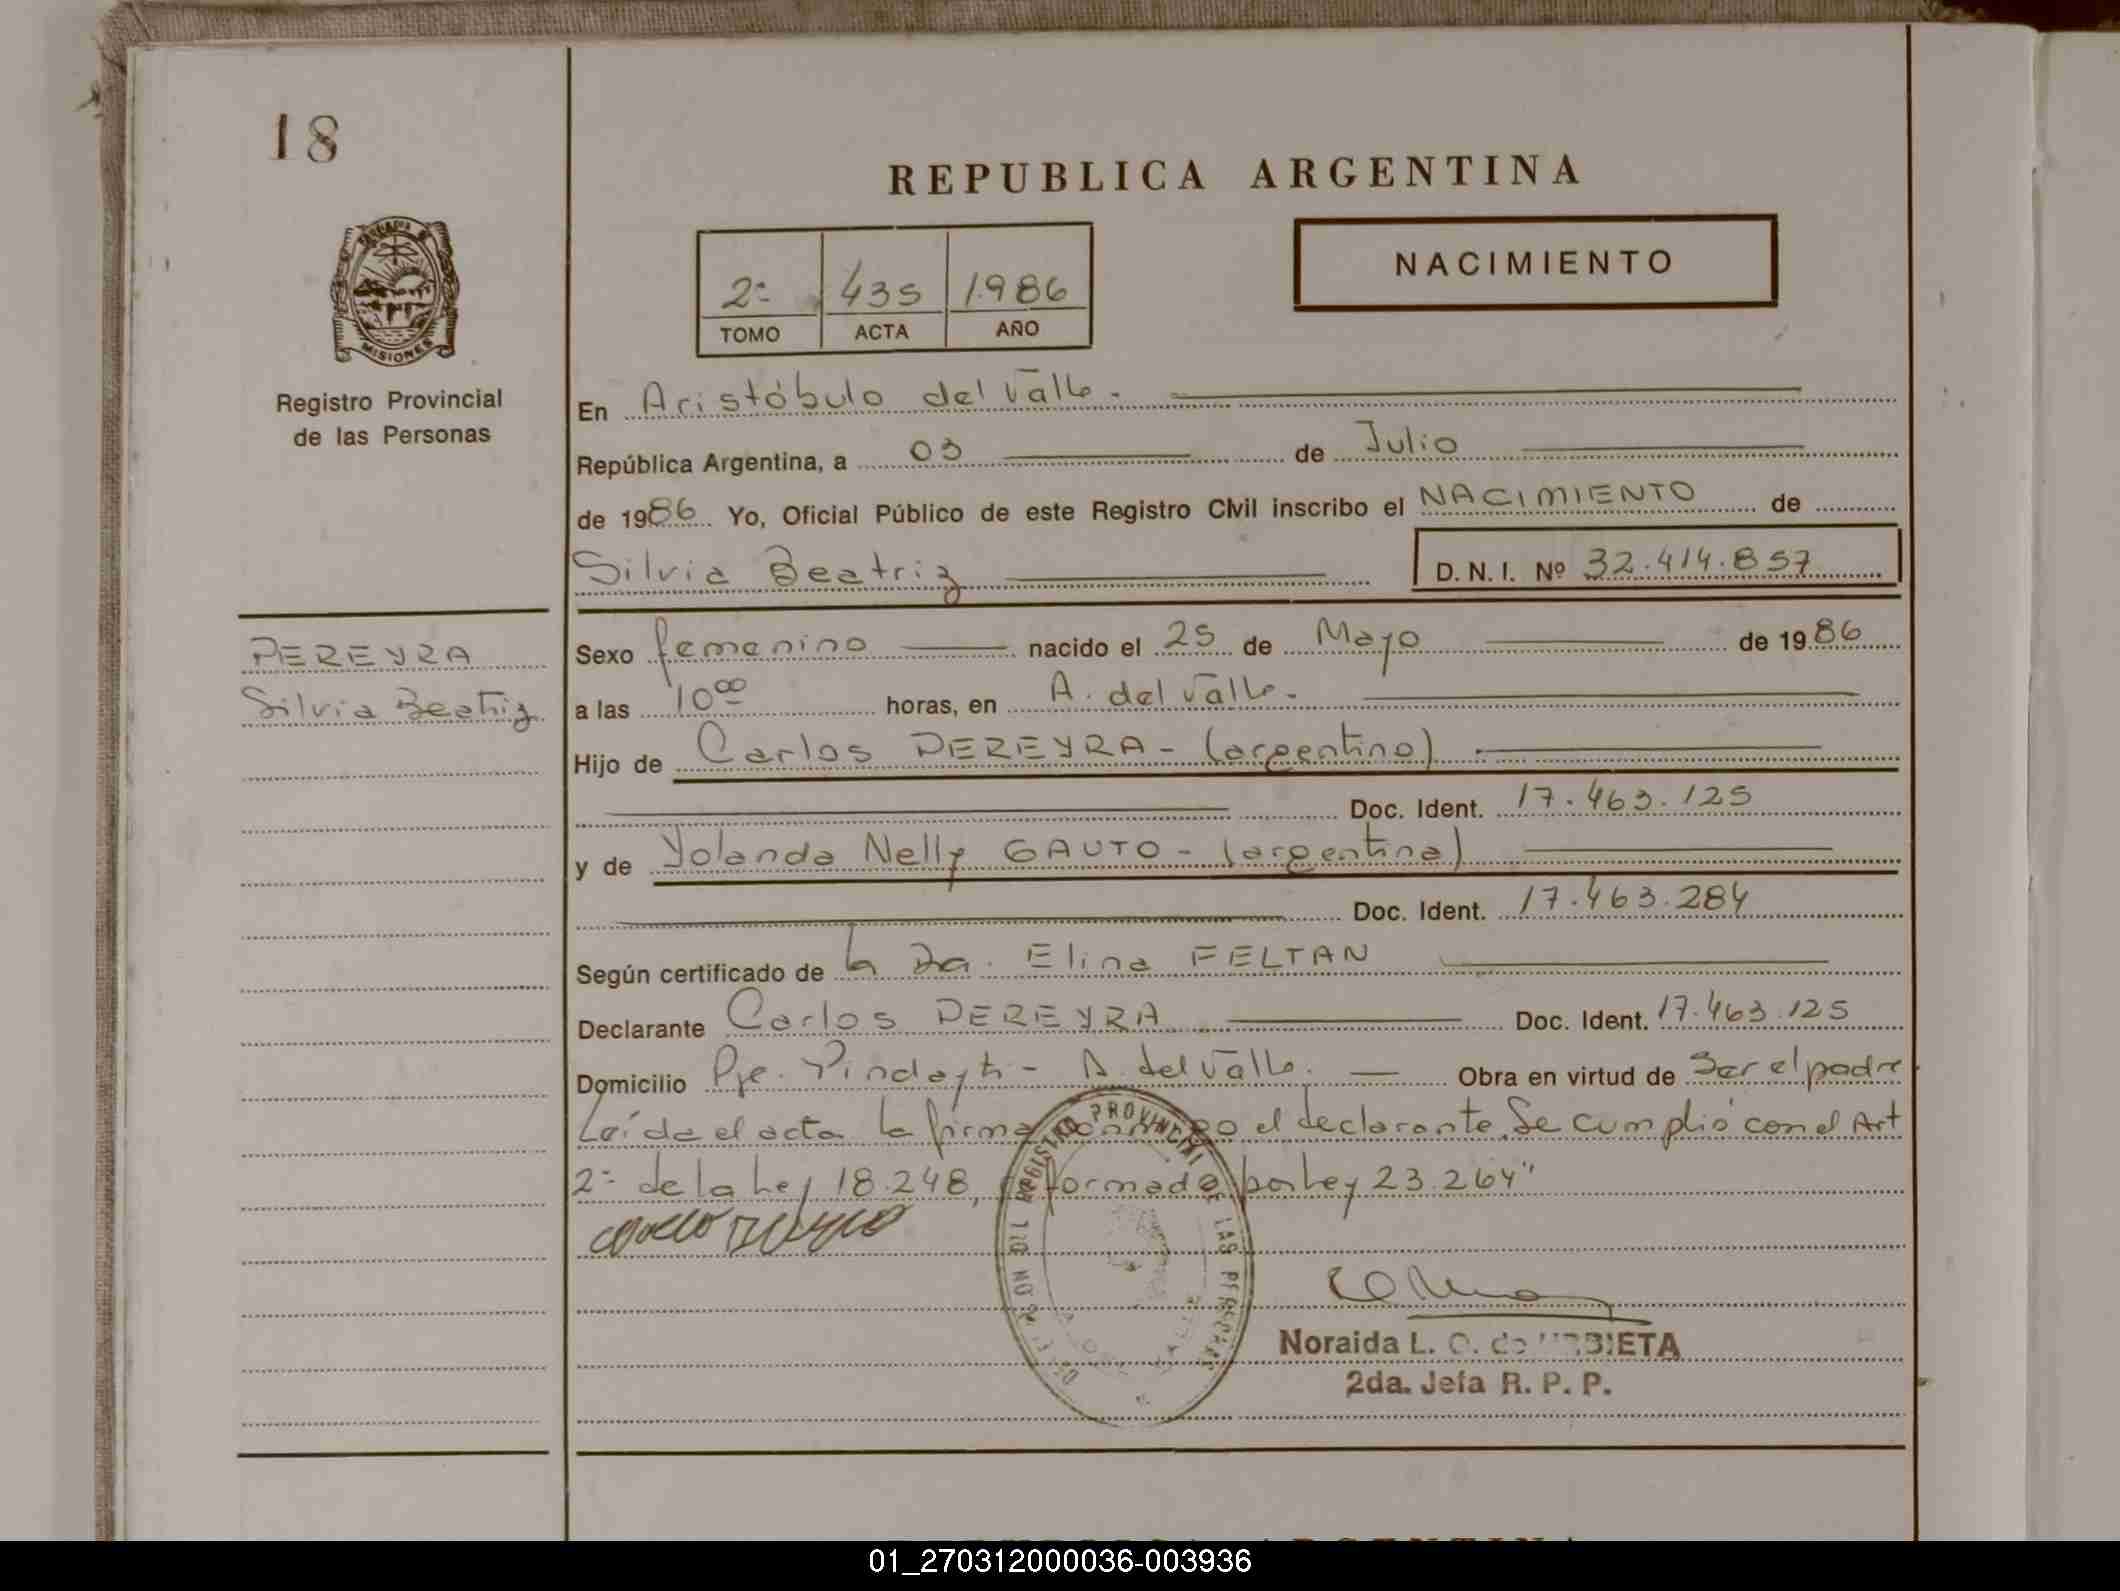 18
REPUBLICA ARGENTINA
NACIMIENTO
2º 435 1.986
TOMO ACTA AÑO
MISIONES
Registro Provincial
de las Personas
En Aristóbulo del Valle.
República Argentina, a 03 de Julio
de 1986 Yo, Oficial Público de este Registro Civil inscribo el NACIMIENTO de
Silvia Beatriz D. N. I. Nº 32.414.857
PEREYRA
Silvia Beatriz
Sexo femenino nacido el 25 de Mayo de 1986
a las 10 00 horas, en A. del Valle.
Hijo de Carlos PEREYRA - (argentino)
Doc. Ident. 17.463.125
y de Yolanda Nelly GAUTO - (argentina)
Doc. Ident. 17.463.284
Según certificado de la Dra. Elina FELTAN
Declarante Carlos PEREYRA Doc. Ident. 17.463.125
Domicilio Pje. Pindayti - A. del Valle. Obra en virtud de Ser el padre
Leída el acta la firma el declarante. Se cumplió con el Art
2º de la Ley 18.248, reformado por Ley 23.264"
REGISTRO PROVINCIAL DE LAS PERSONAS
A. DEL VALLE
Noraida L. O. de URBIETA
2da. Jefa R. P. P.
01_270312000036-003936